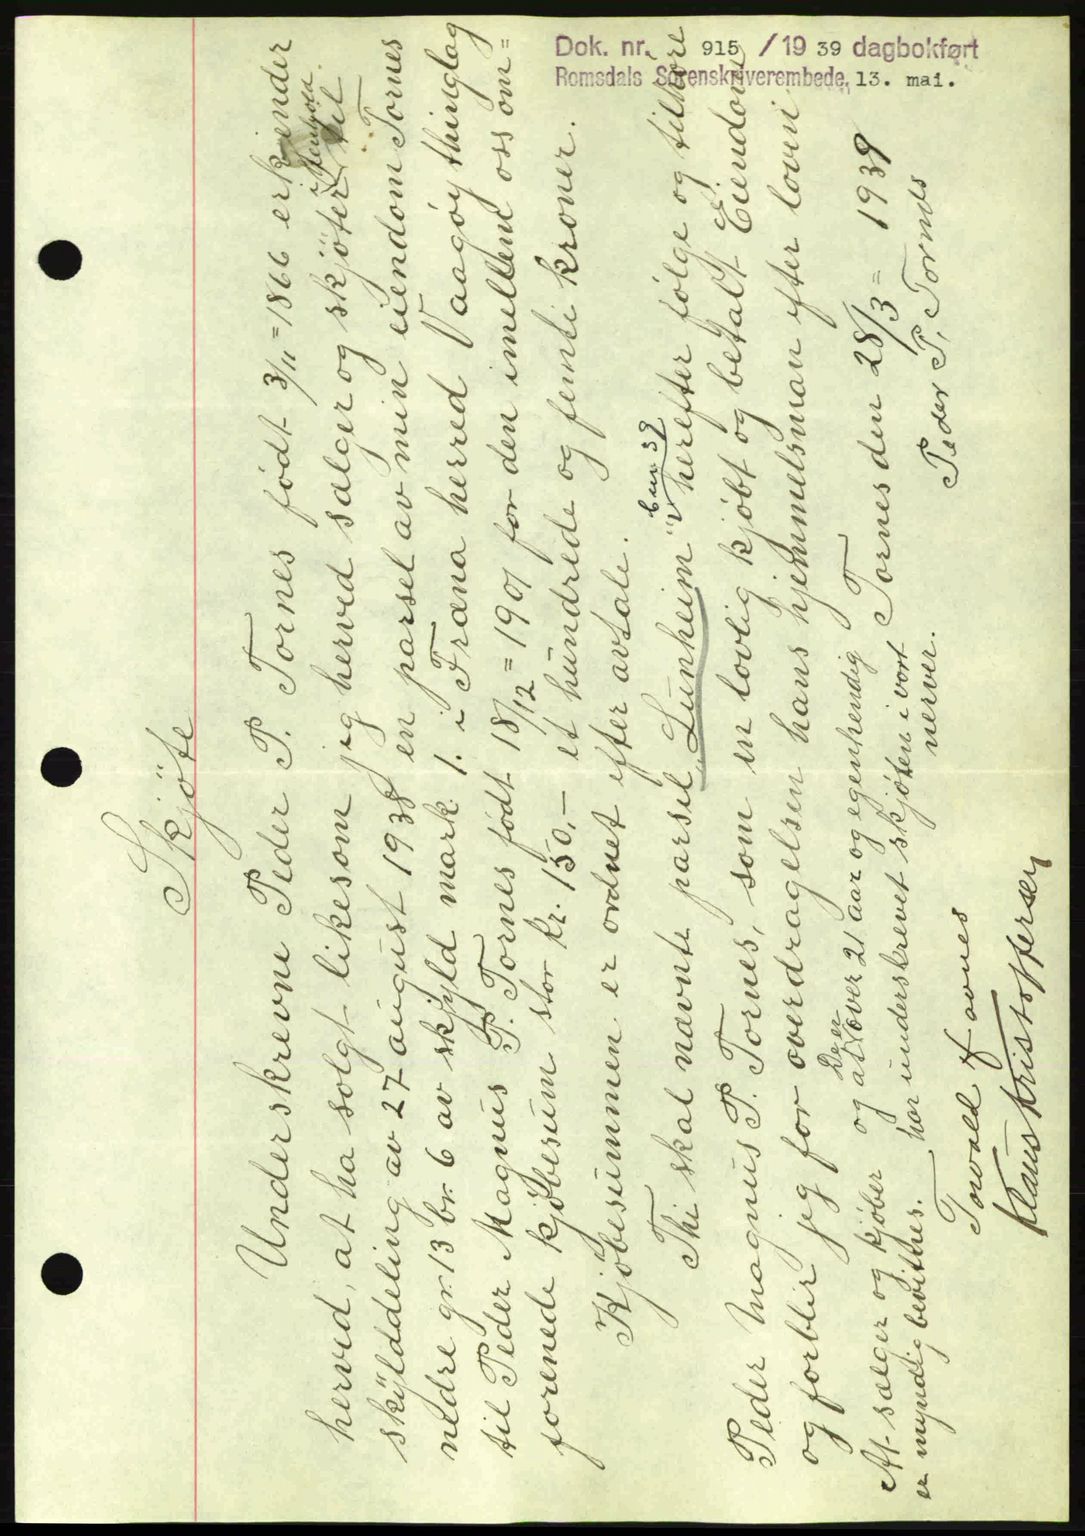 Dok. nr. 915 / 19 39 dagbokført
Romsdals Sorenskriverembede, 13. mai.
Skjöte
Underskrevne Peder P. Tornes født 3/11 = 1866 erkjender
herved, at ha solgt likesom jeg herved sælger og skjöter til
skylddeling av 27 august 1938 en parsel av min eiendom Tornes
nedre gr. 13 br. 6 av skyld mark 1. i Fræna herred Vaagøy thinglag
til Peder Magnus P. Tornes født 18/12 = 1901 for den imellem oss om=
forenede kjøbesum stor kr. 150,- et hundrede og femti kroner.
Kjøbesummen er ordnet efter avtale.
bnr 39
Thi skal nævnte parsel "Lunheim" herefter følge og tilhøre
Peder Magnus P. Tornes, som en lovlig kjøbt og betalt Eiendom
og forblir jeg for overdragelsen hans hjemmelsman efter loven
Tornes den 28/3 = 1939
Peder P. Tornes
At sælger og kjøber og at De er over 21 aar og egenhendig
er myndig bevitnes. har underskrevet skjøten i vort
nerver.
Torvald
Klaus Kristoffersen